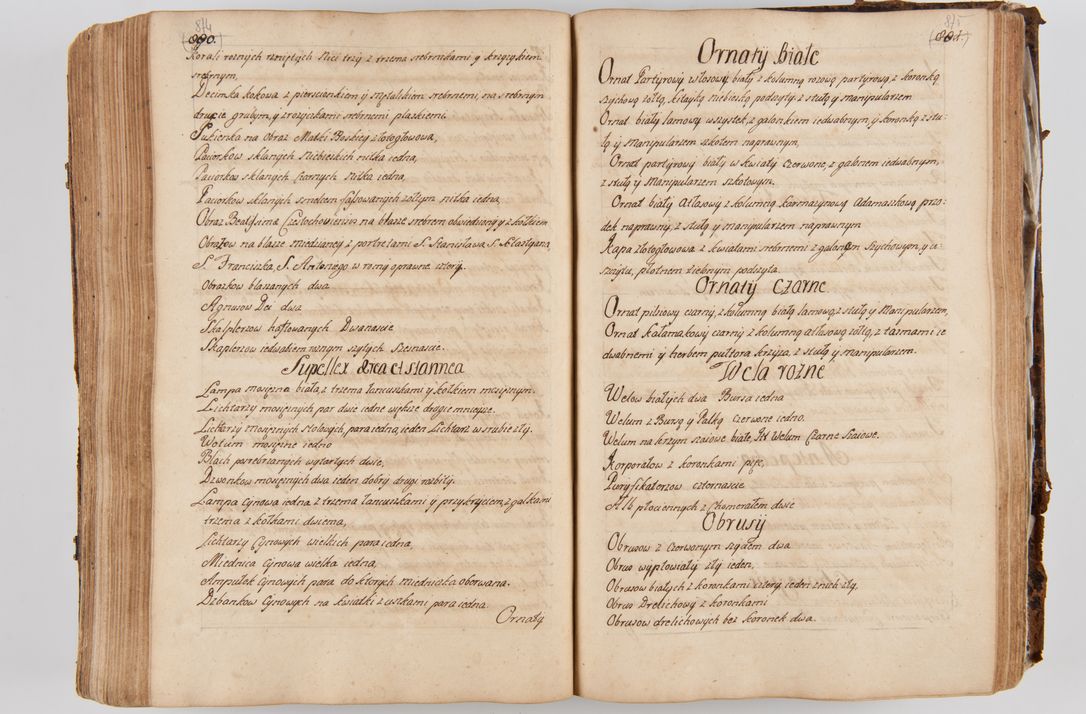 874
880.
Korali roznych rzniętych Nici trzy z trzema srebrnikami y krzyzykiem
srebrnym,
Decimka kokowa z pierscionkiem y metalikem srebrnemi, na srebrnym
drucie grubym, y rozyczkami srebrnemi płaskiemi.
Sukienka na Obraz Matki Boskiey złotogłowowa,
Paciorkow sklanych Niebieskich nitka iedna,
Paciorkow sklanych Czarnych Nitka iedna,
Paciorkow sklanych zołtym nitka iedna,
Obraz Beatissima Częstochoviensis na blasze srebrem obwiedziony y z kołkiem
Obrazow na blasze miedzianey z portretami S. Stanisława S.
S. Franciszka, S. Antoniego w ramy oprawne cztery.
Obrazkow blaszanych dwa
Agnusow Dei dwa
Skalplerzow haftowanych Dwanascie
Skaplerzow iedwabiem roznym szytych Szesnascie.
Supellex ærea et stannea
Lampa mosięzna biała, z trzema łancuszkami y kołkiem mosięznym.
Lichtarzy mosięznych par dwie iedne większe drugie mnieysze.
Lichtarzy mosięznych stołowych, para iedna, ieden Lichtarz w srubie zły.
Wotum mosięzne iedno
Blach posrebrzanych wytartych dwie,
Dzwonkow mosięznych dwa ieden dobry drugi rozbity.
Lampa Cynowa iedna z trzema łancuszkami y przykryciem, z gałkami
trzema z kołkami dwiema,
Lichtarzy Cynowych wielkich para iedna,
Miednica Cynowa wielka iedna,
Ampułek Cynowych para do ktorych miedniczka oberwana.
Dzbankow Cynowych na kwiatki z uszkami para iedna.
Ornaty
875
881.
Ornaty Białe
Ornat Partyrowy włosowy biały z kolumną rozową partyrową, z koronką
szychową zołtą, kitayką niebieską podszyty z stułą y manipularzem
Ornat biały lamowy wszystek, z galonkiem iedwabnym, y koronką z stu-
łą y manipularzem szkołem naprawnym,
Ornat partyrowy biały w kwiaty Czerwone, z galonem iedwabnym,
z stułą y Manipularzem szkołowym.
Ornat biały Atłasowy z kolumną karmazynową Adamaszkową przo-
dek naprawny, z stułą y manipularzem naprawnym
Kapa złotogłowowa z kwiatami srebrnemi z galonem szychowym, y u-
szczytu, płotnem zielonym podszyta.
Ornaty Czarne
Ornat pilsiowy czarny, z kolumną białą lamową, z stułą y Manipularzem,
Ornat kałamakowy czarny z kolumną atłasową zołtą, z tazmami ie
dwabnemi y herbem pułtora krzyza, z stułą y manipularzem.
Wela rozne
Welow białych dwa Bursa iedna
Welum z Bursą y Palką Czerwone iedno.
Welum na krzyzu szaiowe białe, Jt Welum Czarne Szaiowe.
Korporałow z koronkami pięc,
Puryfikaterzow czternascie
Alb płociennych z Chomerałem dwie
Obrusy
Obrusow z Czerwonym szyciem dwa
Obrus wypłowiały zły ieden,
Obrusow białych z koronkami cztery ieden z nich zły,
Obrus Drelichowy z koronkami
Obrusow drelichowych bez koronek dwa.